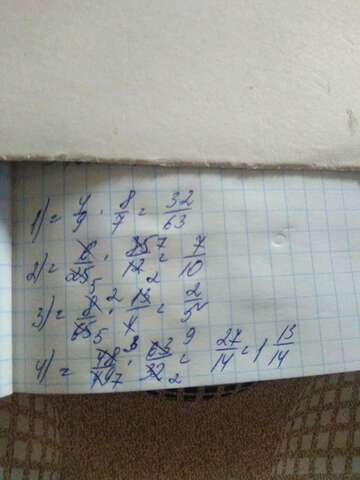 1) = 4/9 · 8/7 = 32/63
2) = 6/25 · 35 7/12 2 = 7/10
3) = 2/65 5 · 13/4 = 2/5
4) = 3/49 7 · 63 9/32 2 = 27/14 = 1 13/14